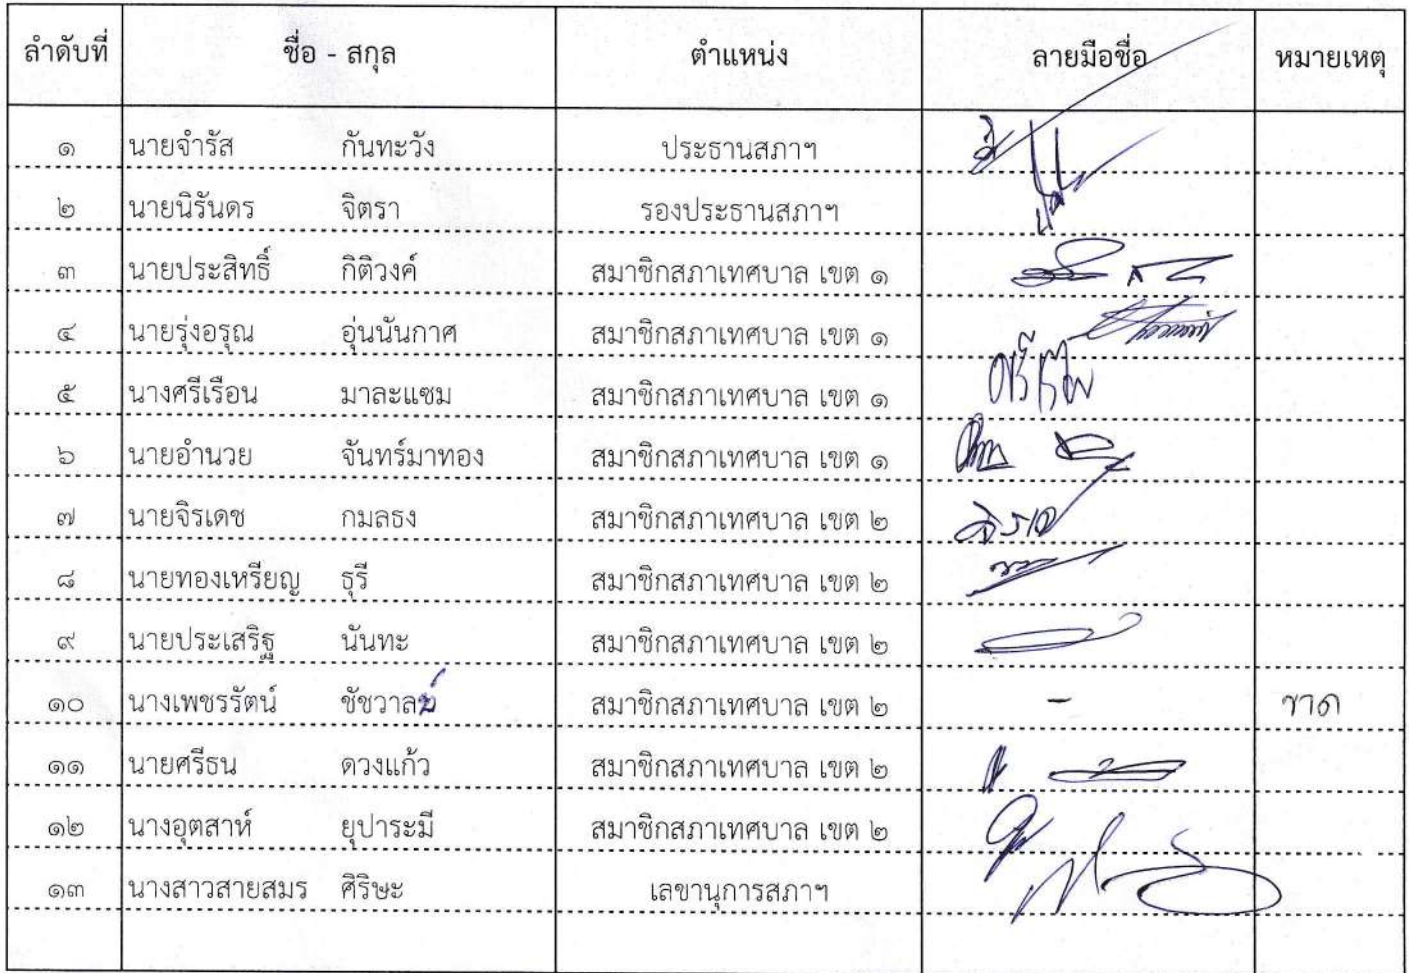 ลำดับที่ ชื่อ - สกุล ตำแหน่ง ลายมือชื่อ หมายเหตุ
๑ นายจำรัส กันทะวัง ประธานสภาฯ
๒ นายนิรันดร จิตรา รองประธานสภาฯ
๓ นายประสิทธิ์ กิติวงค์ สมาชิกสภาเทศบาล เขต ๑
๔ นายรุ่งอรุณ อุ่นนันกาศ สมาชิกสภาเทศบาล เขต ๑
๕ นางศรีเรือน มาละแซม สมาชิกสภาเทศบาล เขต ๑
๖ นายอำนวย จันทร์มาทอง สมาชิกสภาเทศบาล เขต ๑
๗ นายจิรเดช กมลธง สมาชิกสภาเทศบาล เขต ๒
๘ นายทองเหรียญ ธุรี สมาชิกสภาเทศบาล เขต ๒
๙ นายประเสริฐ นันทะ สมาชิกสภาเทศบาล เขต ๒
๑๐ นางเพชรรัตน์ สมาชิกสภาเทศบาล เขต ๒ - ขาด
๑๑ นายศรีธน ดวงแก้ว สมาชิกสภาเทศบาล เขต ๒
๑๒ นางอุตสาห์ ยุปาระมี สมาชิกสภาเทศบาล เขต ๒
๑๓ นางสาวสายสมร ศิริษะ เลขานุการสภาฯ